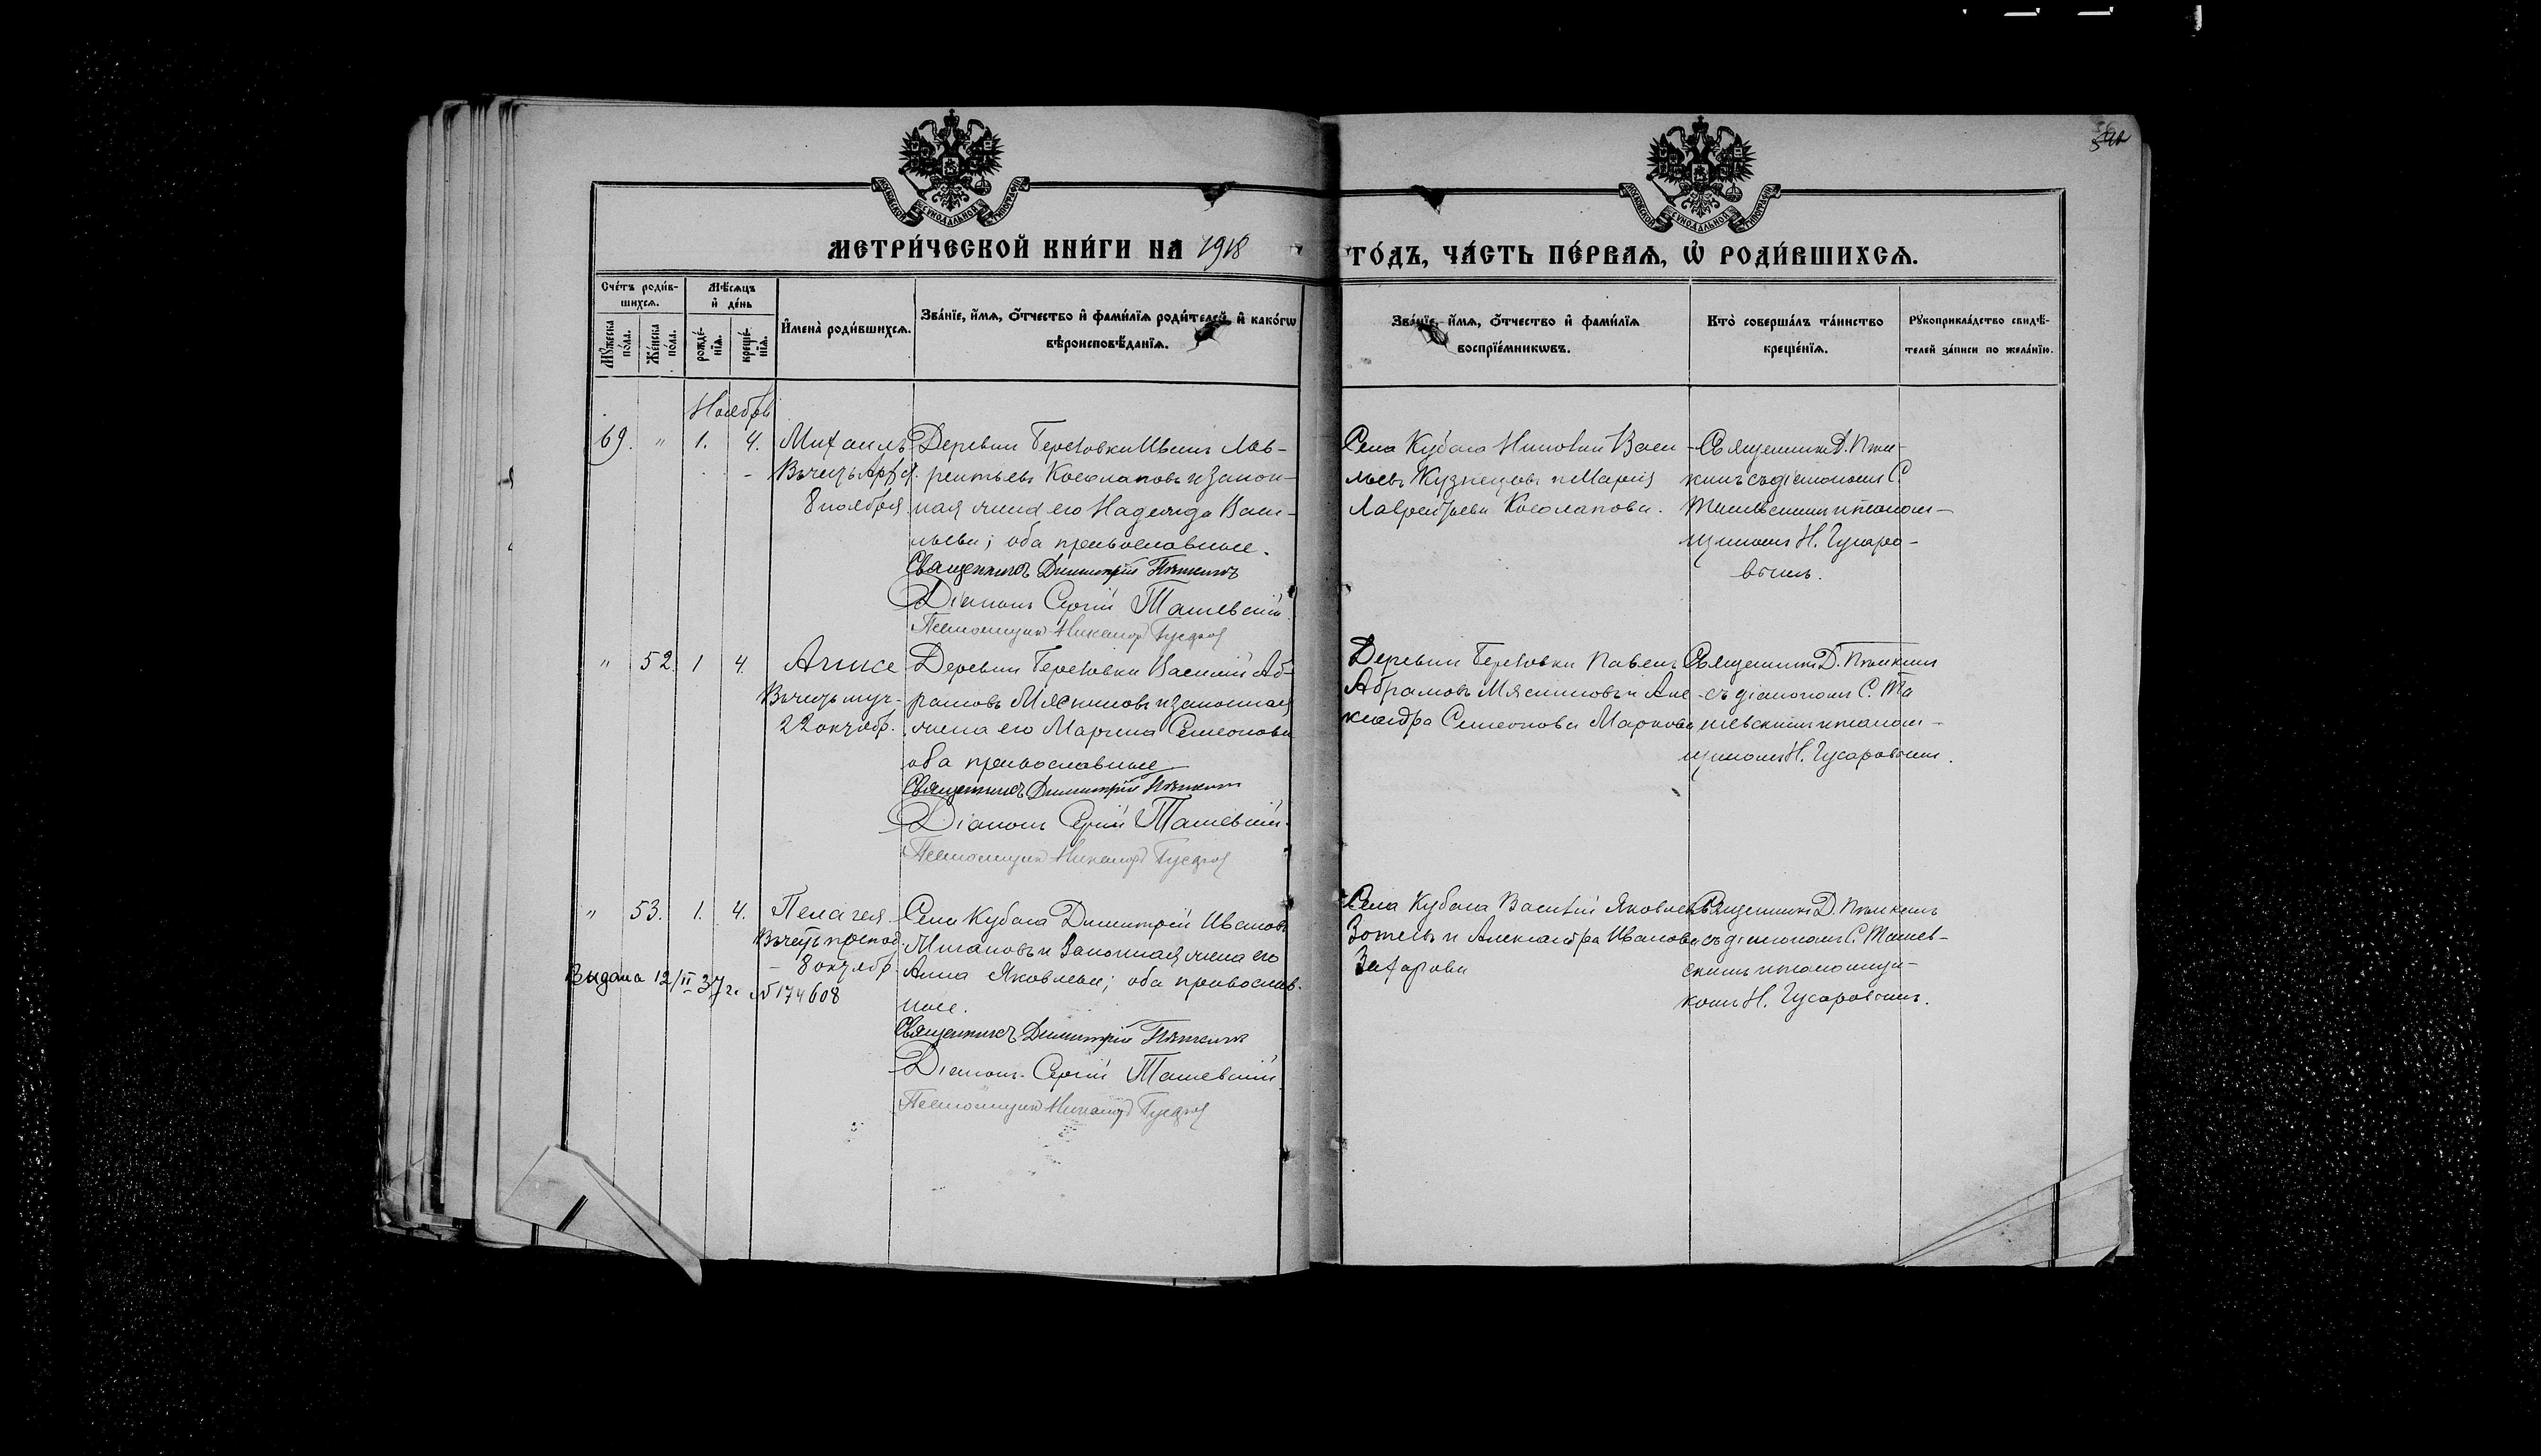 МОСКОВСКОЙ СѴНОДАЛЬНОЙ ТИПОГРАФІИ
МОСКОВСКОЙ СѴНОДАЛЬНОЙ ТИПОГРАФІИ
МЕТРИ́ЧЕСКОЙ КНИ́ГИ НА 1918
ГО́ДЪ, ЧА́СТЬ ПЕ́РВАѦ, Ѡ҆ РОДИ́ВШИХСѦ.
Сче́тъ роди́в-
шихсѧ.
Мѣ́сѧцъ
и҆ де́нь
Мꙋ́жеска
по́ла.
Же́нска
по́ла.
рожде́-
нїѧ.
креще́-
нїѧ.
И҆мена̀ роди́вшихсѧ.
Зва́нїе, и҆́мѧ, ѻ҆́тчество и҆ фами́лїѧ роди́телей, и҆ како́гѡ
вѣроисповѣ́данїѧ.
Зва́нїе, и҆́мѧ, ѻ҆́тчество и҆ фами́лїѧ
воспрїе́мникѡвъ.
Кто̀ соверша́лъ та́инство
креще́нїѧ.
Рꙋкоприкла́дство свидѣ́-
телей за́писи по жела́нїю.
Ноябрь
69. " 1. 4. Михаилъ
Въ честь Арх.
8 ноября
Деревни Березовки Иванъ Лав-
рентьевъ Косолаповъ и закон-
ная жена его Надежда Васи-
льева; оба православные.
Священникъ Димитрій Пѣткинъ
Діаконъ Сергій Ташевскій
Псаломщикъ Никаноръ Гусаров
Села Кубаса Василь-
евъ Кузнецовъ и Марія
Лаврентьева Косолапова.
Священникъ Д. Пѣт-
кинъ съ діакономъ С.
Ташевскимъ и псалом-
щикомъ Н. Гусаро-
вымъ.
" 52. 1 4. Анна
Въ честь муч.
22 октябр.
Деревни Березовки Василій Аб-
рамовъ Мясниковъ и законная
жена его Марина Семеонова
оба православные
Священникъ Димитрій Пѣткинъ
Діаконъ Сергій Ташевскій.
Псаломщикъ Никаноръ Гусаров
Деревни Березовки Павелъ
Абрамовъ Мясниковъ и Але-
ксандра Семеонова Маркова
Священникъ Д. Пѣткинъ
съ діакономъ С. Та
шевскимъ и псалом-
щикомъ Н. Гусаровымъ.
" 53. 1. 4. Пелагея
Въ честь препод.
8 октябр.
Выдана 12/II 37 г. №174608
Села Кубаса Димитрій Ивановъ
и Законная жена его
Анна Яковлева; оба православ-
ные.
Священникъ Димитрій Пѣткинъ
Діаконъ Сергій Ташевскій
Псаломщикъ Никаноръ Гусаров
Села Кубаса Василій Яковлевъ
Зотевъ и Александра Иванова
Захарова
Священникъ Д. Пѣткинъ
съ діакономъ С. Ташев-
скимъ и псаломщи-
комъ Н. Гусаровымъ.